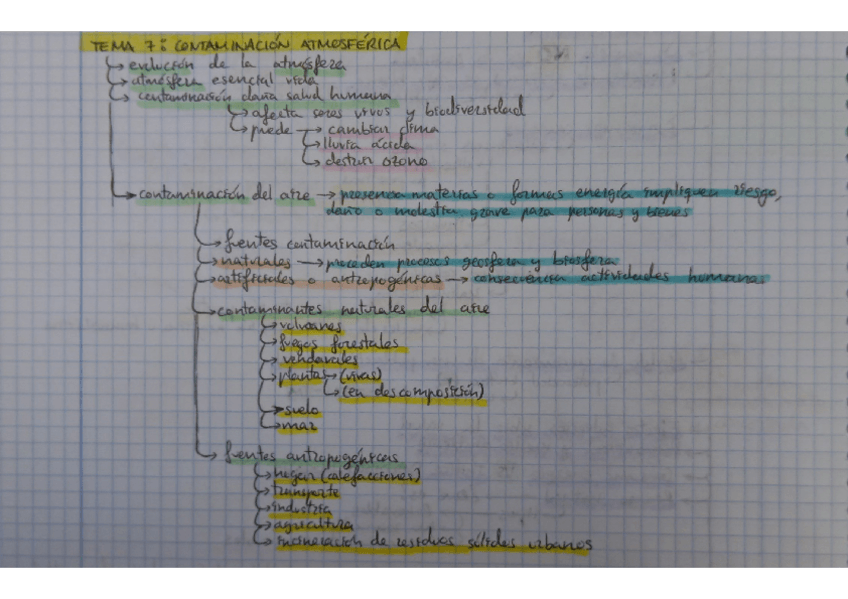 TEMA 7: CONTAMINACIÓN ATMOSFÉRICA
evolución de la atmósfera
atmósfera esencial vida
contaminación daña salud humana
afecta seres vivos y biodiversidad
puede → cambiar clima
lluvia ácida
destruir ozono
contaminación del aire → presencia materias o formas energía impliquen riesgo,
daño o molestia grave para personas y bienes
fuentes contaminación
naturales → proceden procesos geosfera y biosfera
artificiales o antropogénicas → consecuencia actividades humanas
contaminantes naturales del aire
volcanes
fuegos forestales
vendavales
plantas → (vivas)
(en descomposición)
suelo
mar
fuentes antropogénicas
hogar (calefacciones)
transporte
industria
agricultura
incineración de residuos sólidos urbanos